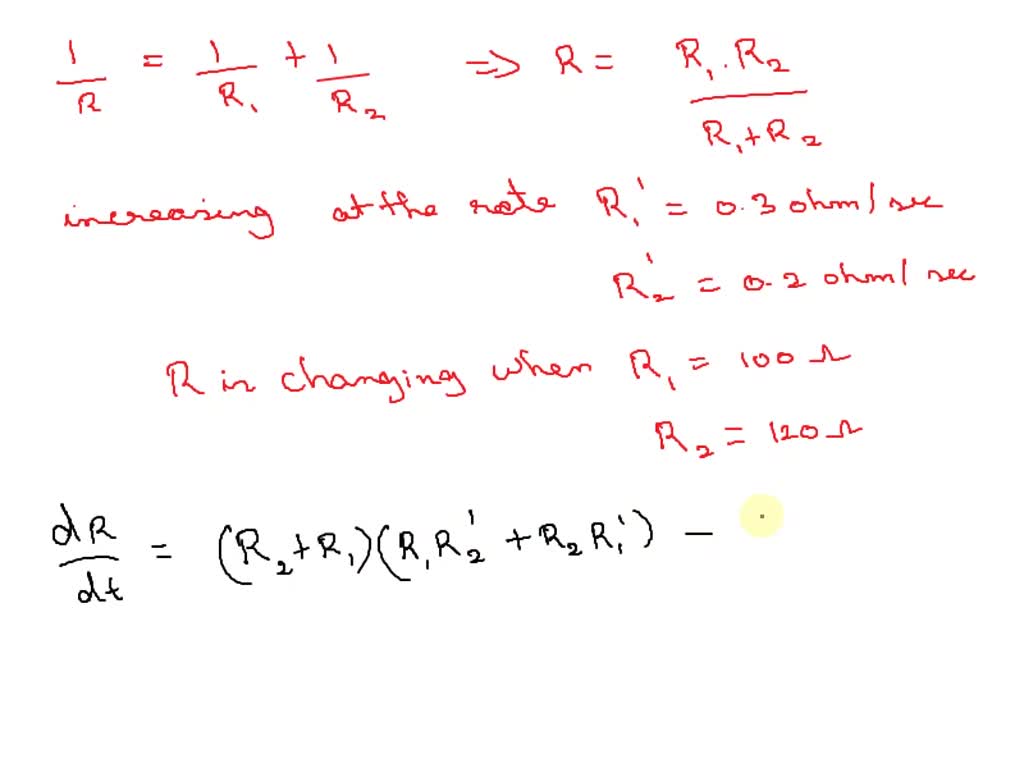 1/R = 1/R₁ + 1/R₂ ⇒ R = R₁.R₂/R₁+R₂
increasing at the rate R₁' = 0.3 ohm/sec
R₂' = 0.2 ohm/sec
R is changing when R₁ = 100 Ω
R₂ = 120 Ω
dR/dt = (R₂+R₁)(R₁R₂' + R₂R₁') −